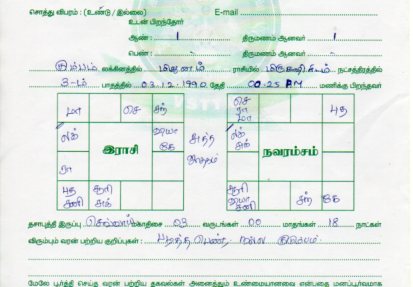 சொத்து விபரம் : (உண்டு / இல்லை) E-mail
உடன் பிறந்தோர்
ஆண் : 1 திருமணம் ஆனவர் 1
பெண் : - திருமணம் ஆனவர் -
கும்பம் லக்கினத்தில் மிதுனம் ராசியில் மிருகசீரிடம் நட்சத்திரத்தில்
3-ம் பாதத்தில் 03.12.1990 தேதி 00.25 AM மணிக்கு பிறந்தவர்
மா செ சந் செ ரா மா புத
லக் குயா கே லக் சுக்
இராசி நவரம்சம்
ரா
புத சனி சூரி சுக் சூரி குயா சனி சந் கே
தசாபுத்தி இருப்பு செவ்வாய் மகாதிசை 03 வருடங்கள் 00 மாதங்கள் 18 நாட்கள்
விரும்பும் வரன் பற்றிய குறிப்புகள் : படித்த பெண், நல்ல குடும்பம்.
மேலே பூர்த்தி செய்த வரன் பற்றிய தகவல்கள் அனைத்தும் உண்மையானவை என்பதை மனப்பூர்வமாக